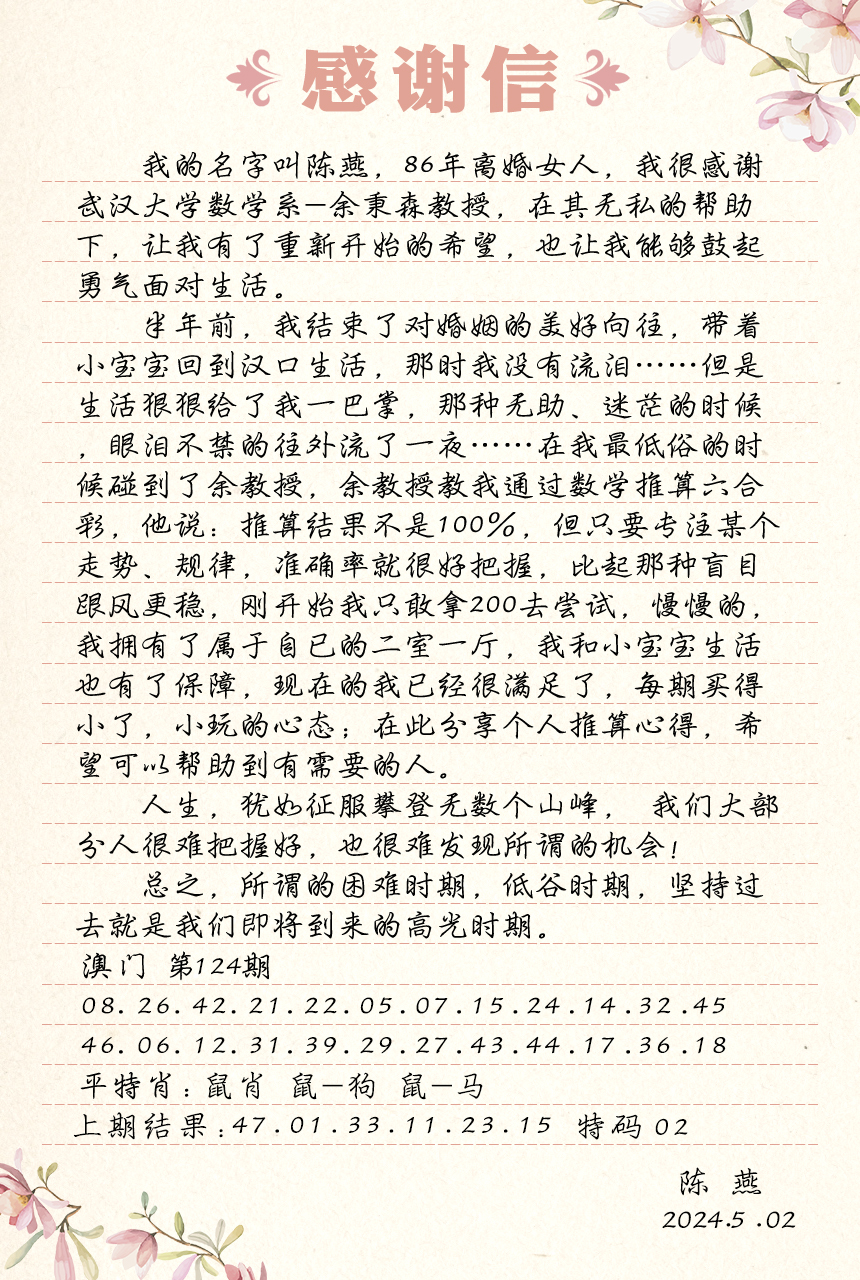 感谢信
我的名字叫陈燕，86年离婚女人，我很感谢
武汉大学数学系—余秉森教授，在其无私的帮助
下，让我有了重新开始的希望，也让我能够鼓起
勇气面对生活。
半年前，我结束了对婚姻的美好向往，带着
小宝宝回到汉口生活，那时我没有流泪……但是
生活狠狠给了我一巴掌，那种无助、迷茫的时候
，眼泪不禁的往外流了一夜……在我最低俗的时
候碰到了余教授，余教授教我通过数学推算六合
彩，他说：推算结果不是100%，但只要专注某个
走势、规律，准确率就很好把握，比起那种盲目
跟风更稳，刚开始我只敢拿200去尝试，慢慢的，
我拥有了属于自已的二室一厅，我和小宝宝生活
也有了保障，现在的我已经很满足了，每期买得
小了，小玩的心态；在此分享个人推算心得，希
望可以帮助到有需要的人。
人生，犹如征服攀登无数个山峰， 我们大部
分人很难把握好，也很难发现所谓的机会！
总之，所谓的困难时期，低谷时期，坚持过
去就是我们即将到来的高光时期。
澳门 第124期
08.26.42.21.22.05.07.15.24.14.32.45
46.06.12.31.39.29.27.43.44.17.36.18
平特肖：鼠肖 鼠—狗 鼠—马
上期结果：47.01.33.11.23.15 特码 02
陈 燕
2024.5.02